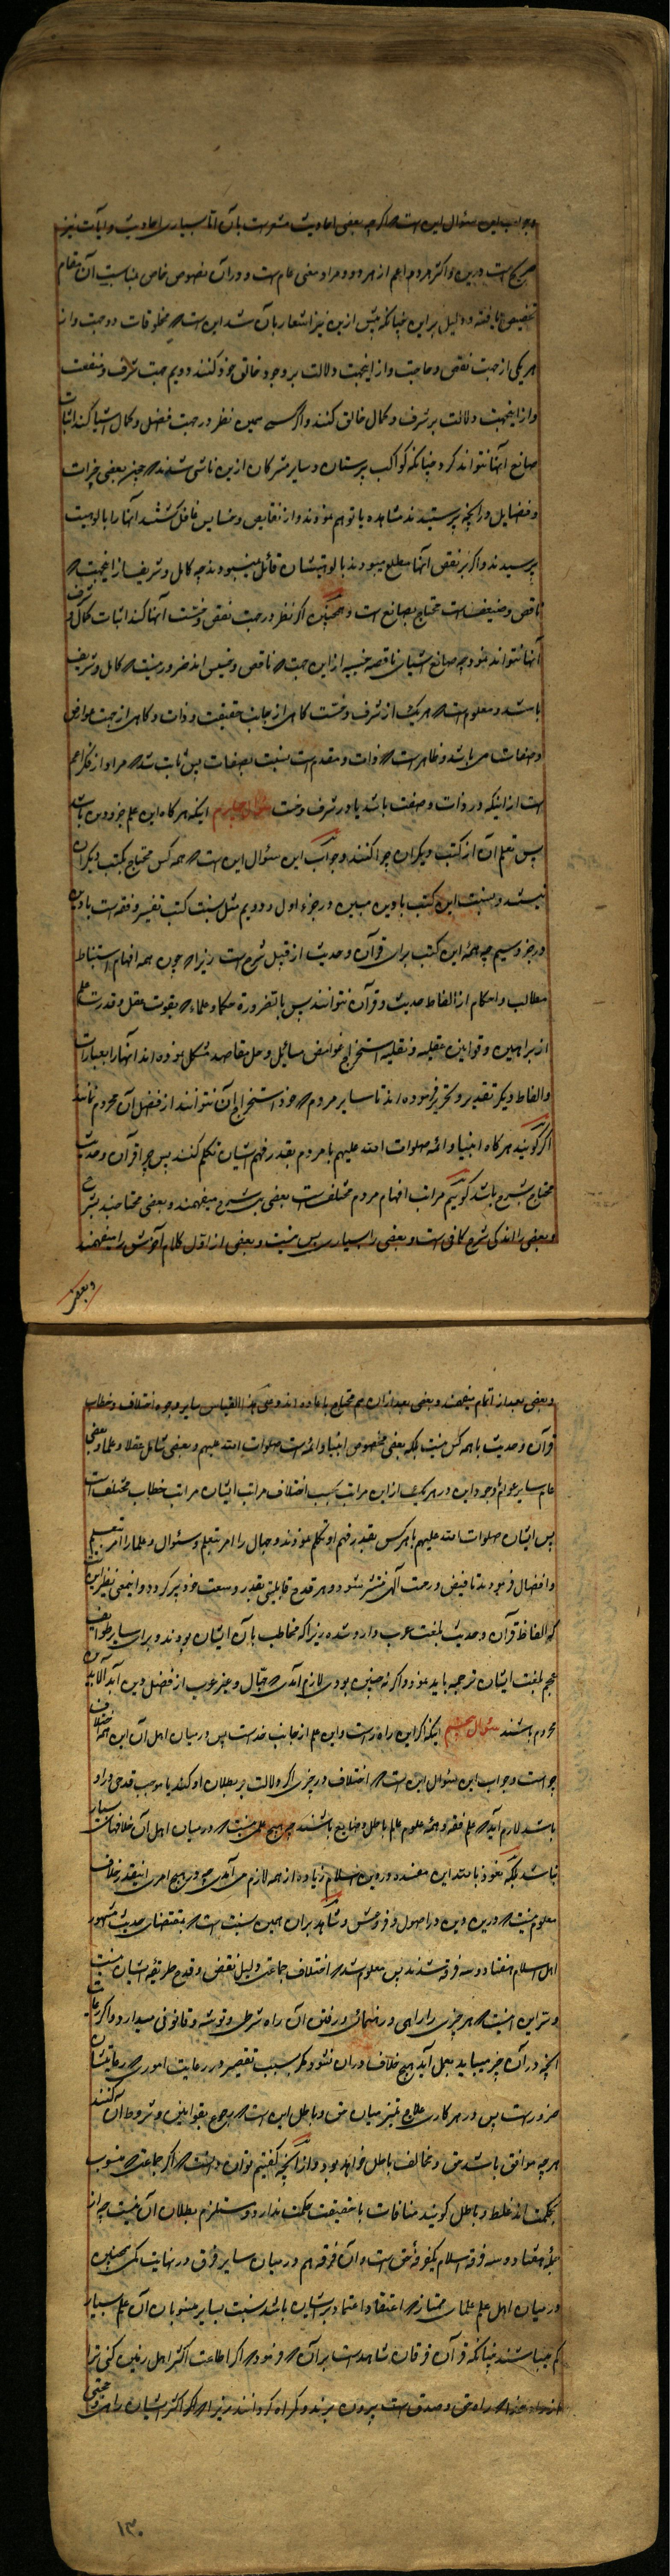 و جواب این سؤال این است که اگر چه بعضی احادیث مشعر است بآن اما بسیاری احادیث و آیات نیز
صریح است درین و اکثر مردم اعم از هر دو و مراد معنی عام است و در آن نصوص خاص بمناسبت آن مقام
تخصیص یافته و دلیل بر این چنانکه پیش ازین نیز اشعار بآن شد این است که مخلوقات دو جهت دارند
هر یکی از جهت نقص و حاجت و از اینجهت دلالت بر وجود خالق خود کنند دویم جهت شرف و منفعت
و از اینجهت دلالت بر شرف و کمال خالق کنند و اگر کسی همین نظر در جهت فضل و کمال اشیا کند اثبات
صانع آنها نتواند کرد چنانکه کواکب پرستان و سایر مشرکان ازین ناشی شدند که چون بعضی خیرات
و فضایل در آنچه پرستیدند مشاهده یا توهم نمودند و از نقایص و خسایس غافل گشتند آنها را بالوهیت
پرسیدند و اگر بر نقص آنها مطلع میبودند بالوهیتشان قائل نمیبودند چه کامل و شریف از اینجهت که
ناقص و ضعیف است محتاج بصانع است و همچنین اگر نظر در جهت نقص و خست آنها کند اثبات کمال و شرف
آنها نتواند نمود چه صانع اشیای ناقصه خسیسه از این جهت که ناقص و خسیس اند ضرور نیست که کامل و شریف
باشد و معلوم است که هر یک از شرف و خست گاهی از جانب حقیقت و ذات و گاهی از جهت عوارض
و صفات می باشد و ظاهر است که ذات مقدم است بنسبت بصفات پس ثابت شد که مراد از فکر اعم
است از اینکه در ذات و صفت باشد یا در شرف و خست سؤال چهارم اینکه هر گاه این علم جزو دین باشد
پس تعلم آن از کتب دیگران چرا کنند و جواب این سؤال این است که همه کس محتاج بکتب دیگران
نیستند و نسبت این کتب با دین مبین در جزء اول و دویم مثل نسبت کتب تفسیر و فقه است با دین
در جزو سیم چه همه این کتب برای قرآن و حدیث از قبیل شرح است زیرا که چون همه افهام استنباط
مطالب و احکام از الفاظ حدیث و قرآن نتوانند پس بالضرورة حکما و علماء که بقوت عقل و قدرت علم
از براهین و قوانین عقلیه و نقلیه استخراج غوامض مسائل و حل مقاصد مشکل نموده اند آنها را بعبارات
و الفاظ دیگر تقدیر و تحریر فرموده اند تا سایر مردم که خود استخراج آن نتوانند از فضل آن محروم نمانند
اگر گویند هر گاه انبیا و ائمه صلوات الله علیهم با مردم بقدر فهم ایشان تکلم کنند پس چرا قرآن و حدیث
محتاج بشرح باشد گوئیم مراتب افهام مردم مختلف است بعضی بی شرح میفهمند و بعضی محتاجند بشرح
و بعضی را اندکی شرح کافی است و بعضی را بسیاری بس نیست و بعضی از اول کلام آخرش را میفهمند
و بعضی
و بعضی بعد از اتمام میفهمند و بعضی بعد از آن هم محتاج باعاده اند و علی هذا القیاس سایر وجوه اختلاف و خطاب
قرآن و حدیث با همه کس نیست بلکه بعضی مخصوص انبیا و ائمه است صلوات الله علیهم و بعضی شامل عقلا و علما و بعضی
عام سایر عوام با وجود این در هر یک از این مراتب بسبب اختلاف مراتب ایشان مراتب خطاب مختلف است
پس ایشان صلوات الله علیهم با هر کس بقدر فهم او تکلم نمودند و جهال را امر بتعلم و سؤال و علما را امر بتعلیم
و افضال فرمودند تا فیض و رحمت الهی منتشر شود و هر قدح قابلیتی بقدر وسعت خود پر گردد و اینمعنی نظیر این است
که الفاظ قرآن و حدیث بلغت عرب وارد شده زیرا که مخاطب بآن ایشان بودند و برای سایر طوایف
عجم بلغت ایشان ترجمه باید نمود و اگر نه چنین بودی لازم آمدی که جهال و غیر عرب از فضل دین ابد الآبدین
محروم باشند سؤال پنجم اینکه اگر این راه راست و این علم از جانب خداست پس در میان اهل آن این همه اختلاف
چراست و جواب این سؤال این است که اختلاف در چیزی اگر دلالت بر بطلان او کند یا موجب قدحی در او
باشد لازم آید که علم فقه و همه علوم عالم باطل و ضایع باشند چه هیچ علمی نیست که در میان اهل آن خلافهای بسیار
نباشد بلکه نعوذ بالله این مفسده در دین اسلام زیاده از همه لازم می آمدی چه در هیچ امری اینقدر خلاف
معلوم نیست که درین دین در اصول و فروعش و شاهد بر آن همین بس است که بمقتضای حدیث مشهور
اهل اسلام هفتاد و سه فرقه شدند پس معلوم شد که اختلاف جماعتی دلیل نقص و قدح طریقه ایشان نیست
و سر این اینست که هر چیزی را راهی و رهنمائی و رفتن آن راه شرطی و توشه و قانونی میدارد و اگر رعایت
آنچه در آن چیز میباید بعمل آید هیچ خلاف در آن نشود مگر بسبب تقصیر در رعایت اموری که رعایتشان
ضرور است پس در هر کاری علاج تمیز میان حق و باطل این است که رجوع بقوانین و شروط آن کنند
هر چه موافق باشد حق و مخالف باطل خواهد بود و از آنچه گفتیم توان دانست که اگر جماعتی که منسوب
بحکمت اند غلط و باطل گویند منافات با حقیقت حکمت ندارد و مستلزم بطلان آن نیست چه از
جمله هفتاد و سه فرقه اسلام یکفرقه حق است و آن فرقه هم در میان سایر فرق در نهایت کمی همچنین
در میان اهل علم علمای ممتاز که اعتقاد و اعتماد بر ایشان باشد نسبت بسایر منسوبان آن علم بسیار
کم میباشند چنانکه قرآن فرقان شاهد است بر آن که فرمود که اگر اطاعت اکثر اهل زمین کنی ترا
از راه خدا که راه حق و صدق است بیرون برند و گمراه گردانند زیرا که اکثر ایشان را
۱۳۰